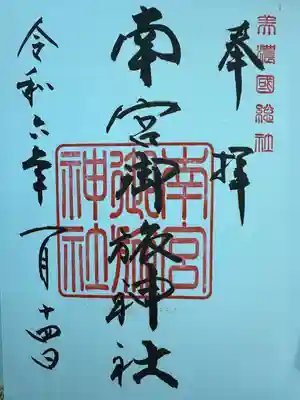 美濃國総社
奉拝
南宮御旅神社
南宮
御旅
神社
令和六年一月十四日